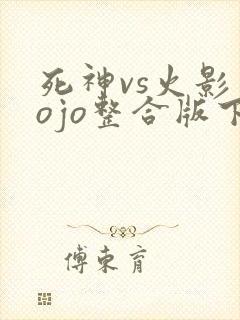 死神vs火影
ojo整合版下
傅东育